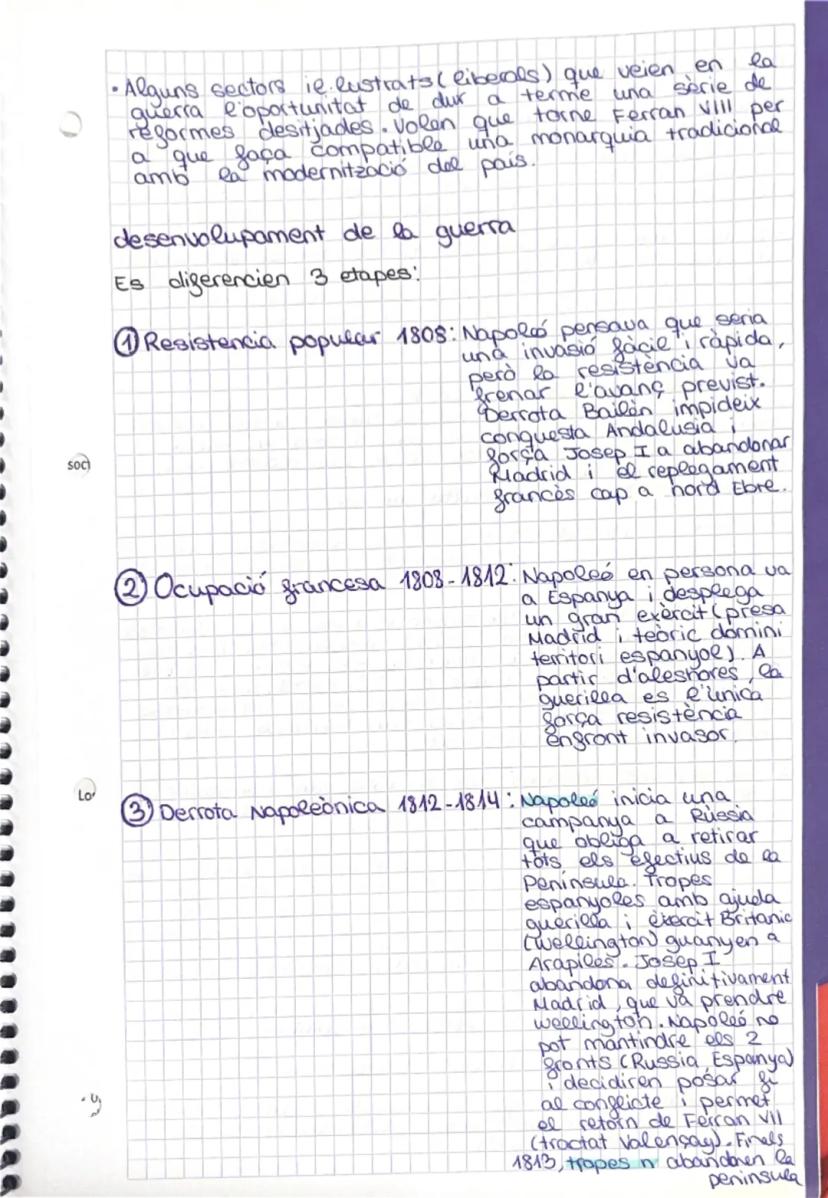 • Alguns sectors il·lustrats (liberals) que veien en la
guerra l'oportunitat de dur a terme una sèrie de
reformes desitjades. Volen que torne Ferran VIII per
a que faça compatible una monarquia tradicional
amb la modernització del país.
desenvolupament de la guerra
Es diferencien 3 etapes:
① Resistencia popular 1808: Napoleó pensava que seria
una invasió fàcil i ràpida,
però la resistència va
frenar l'avanç previst.
Derrota Bailén impideix
conquesta Andalusia i
força Josep I a abandonar
Madrid i el replegament
francès cap a nord Ebre.
soc)
② Ocupació francesa 1808-1812: Napoleó en persona va
a Espanya i desplega
un gran exèrcit (presa
Madrid i teòric domini
territori espanyol). A
partir d'aleshores, la
guerilla es l'única
força resistència
enfront invasor.
Lo
③ Derrota Napoleònica 1812-1814: Napoleó inicia una
campanya a Rússia
que obliga a retirar
tots els efectius de la
Península. Tropes
espanyoles amb ajuda
guerilla i exercit Britanic
(Wellington) guanyen a
Arapiles. Josep I
abandona definitivament
Madrid, que va prendre
Wellington. Napoleó no
pot mantindre els 2
fronts (Russia, Espanya)
i decidiren posar fi
al conflicte i permet
el retorn de Ferran VII
(tractat Valençay). Finals
1813, tropes n abandonen la
peninsula